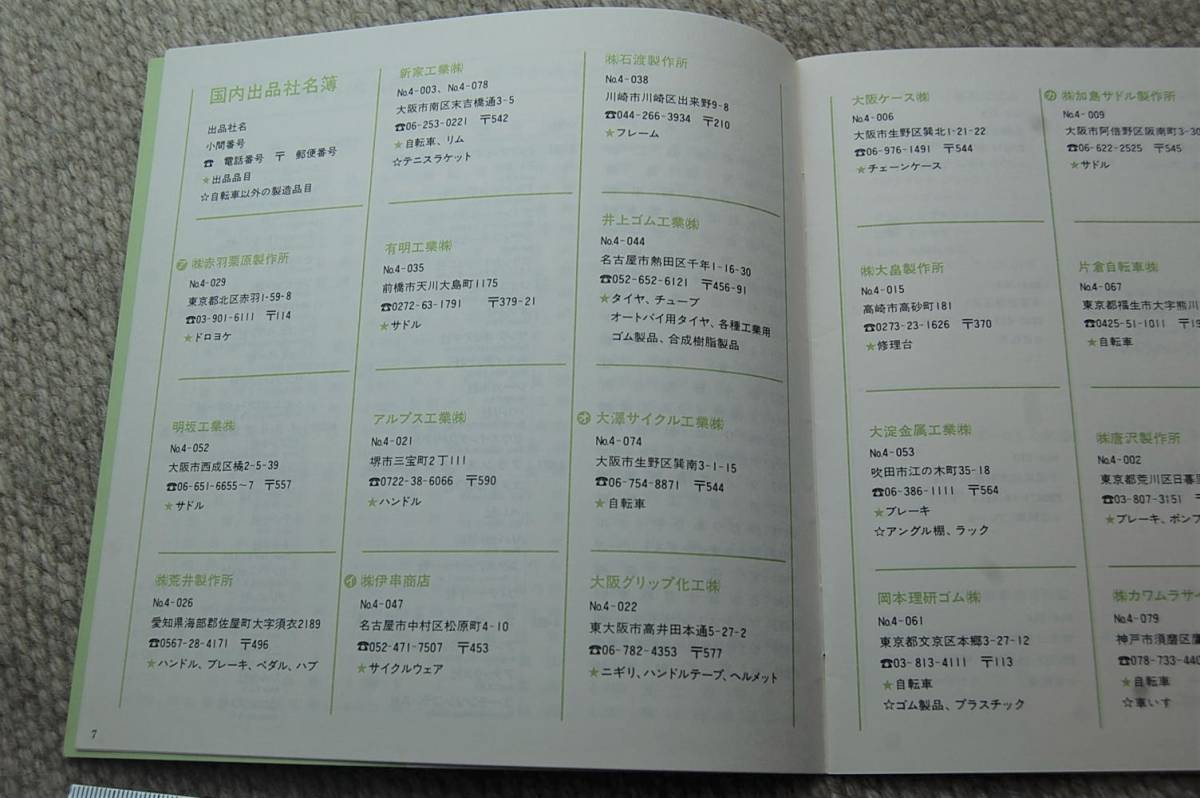 国内出品社名簿
出品社名
小間番号
☎ 電話番号 〒 郵便番号
★出品品目
☆自転車以外の製造品目
ア ㈱赤羽栗原製作所
No.4-029
東京都北区赤羽1-59-8
☎03-901-6111 〒114
★ドロヨケ
明坂工業㈱
No.4-052
大阪市西成区橘2-5-39
☎06-651-6655~7 〒557
★サドル
㈱荒井製作所
No.4-026
愛知県海部郡佐屋町大字須衣2189
☎0567-28-4171 〒496
★ハンドル、ブレーキ、ペダル、ハブ
新家工業㈱
No.4-003、No.4-078
大阪市南区末吉橋通3-5
☎06-253-0221 〒542
★自転車、リム
☆テニスラケット
有明工業㈱
No.4-035
前橋市天川大島町1175
☎0272-63-1791 〒379-21
★サドル
アルプス工業㈱
No.4-021
堺市三宝町2丁111
☎0722-38-6066 〒590
★ハンドル
イ ㈱伊串商店
No.4-047
名古屋市中村区松原町4-10
☎052-471-7507 〒453
★サイクルウェア
㈱石渡製作所
No.4-038
川崎市川崎区出来野9-8
☎044-266-3934 〒210
★フレーム
井上ゴム工業㈱
No.4-044
名古屋市熱田区千年1-16-30
☎052-652-6121 〒456-91
★タイヤ、チューブ
オートバイ用タイヤ、各種工業用
ゴム製品、合成樹脂製品
オ 大澤サイクル工業㈱
No.4-074
大阪市生野区巽南3-1-15
☎06-754-8871 〒544
★自転車
大阪グリップ化工㈱
No.4-022
東大阪市高井田本通5-27-2
☎06-782-4353 〒577
★ニギリ、ハンドルテープ、ヘルメット
7
大阪ケース㈱
No.4-006
大阪市生野区巽北1-21-22
☎06-976-1491 〒544
★チェーンケース
㈱大畠製作所
No.4-015
高崎市高砂町181
☎0273-23-1626 〒370
★修理台
大淀金属工業㈱
No.4-053
吹田市江の木町35-18
☎06-386-1111 〒564
★ブレーキ
☆アングル棚、ラック
岡本理研ゴム㈱
No.4-061
東京都文京区本郷3-27-12
☎03-813-4111 〒113
★自転車
☆ゴム製品、プラスチック
カ ㈱加島サドル製作所
No.4-009
大阪市阿倍野区阪南町3-30
☎06-622-2525 〒545
★サドル
片倉自転車㈱
No.4-067
東京都福生市大字熊川
☎0425-51-1011 〒19
★自転車
㈱唐沢製作所
No.4-002
東京都荒川区日暮里
☎03-807-3151
★ブレーキ、ポンプ
㈱カワムラサイ
No.4-079
神戸市須磨区
☎078-733-440
★自転車
☆車いす